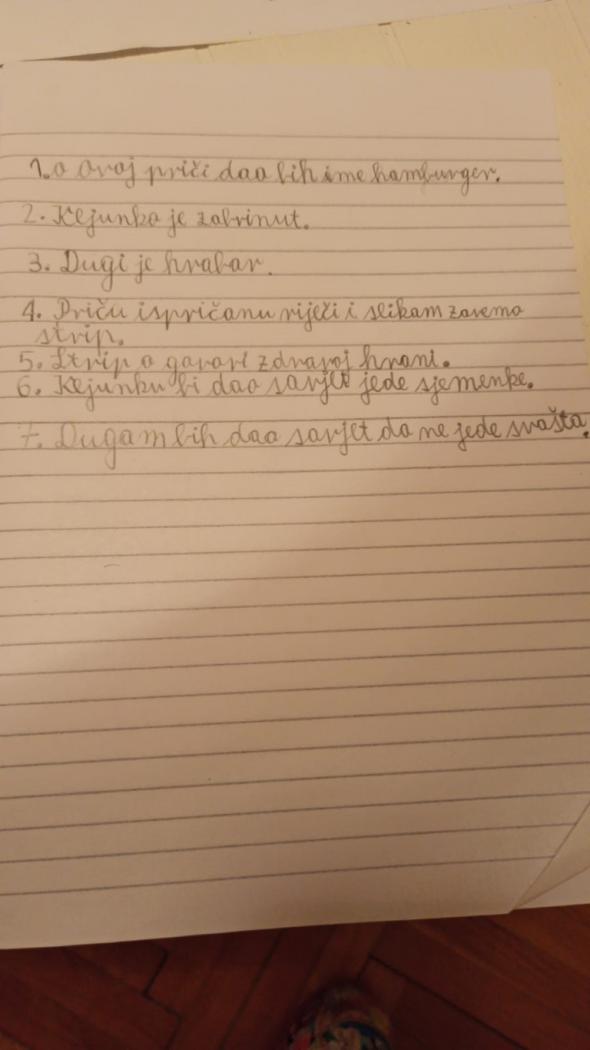 1. o ovoj priči dao bih ime hamburger.
2. Kljunko je zabrinut.
3. Dugi je hrabar.
4. Priču ispričanu riječi i slikam zovemo
strip.
5. Strip o govori zdravoj hrani.
6. Kljunku bi dao savjet jede sjemenke.
7. Dugam bih dao savjet da ne jede svašta.